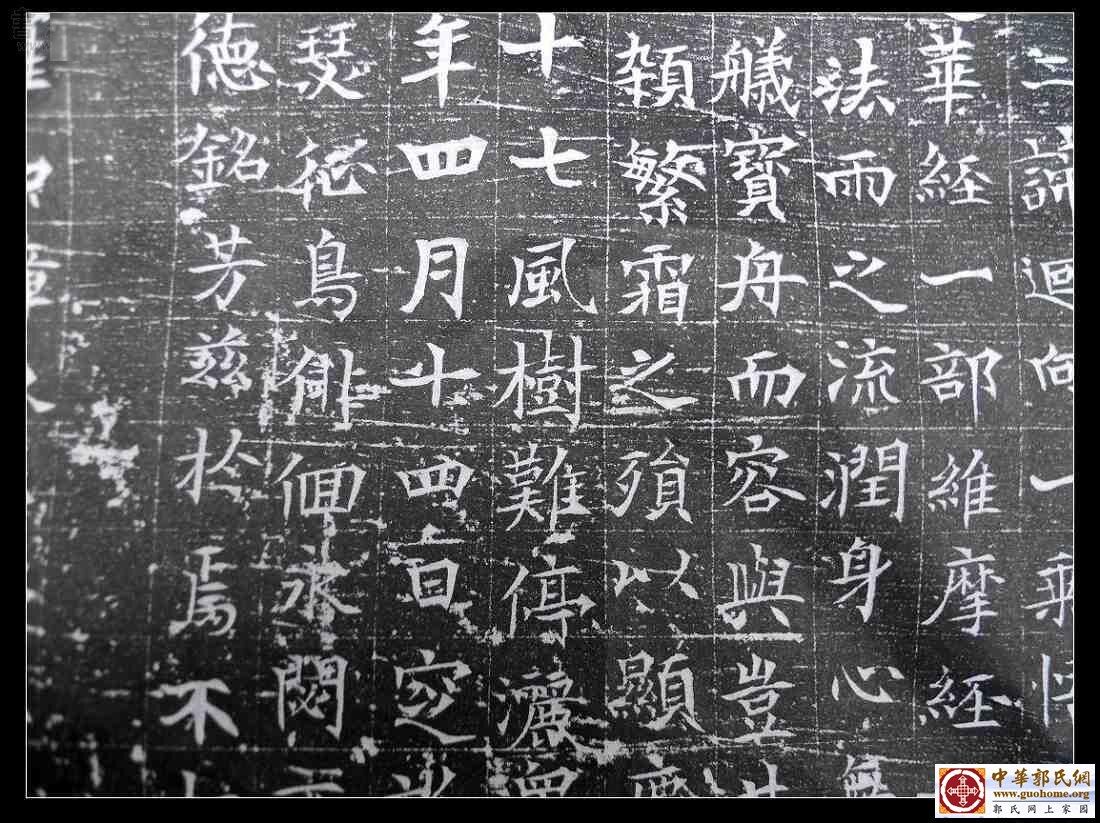 二誦迴向一乘悟
華經一部維摩經
法雨之流潤身心
艤寶舟而容與豈
繁霜之殞以顯
十七風樹難停灑
年四月十四日空
瑟徒鳥俑佪永閟
德銘芳兹於焉不
中華郭氏網
www.guohome.org
郭氏网上家园